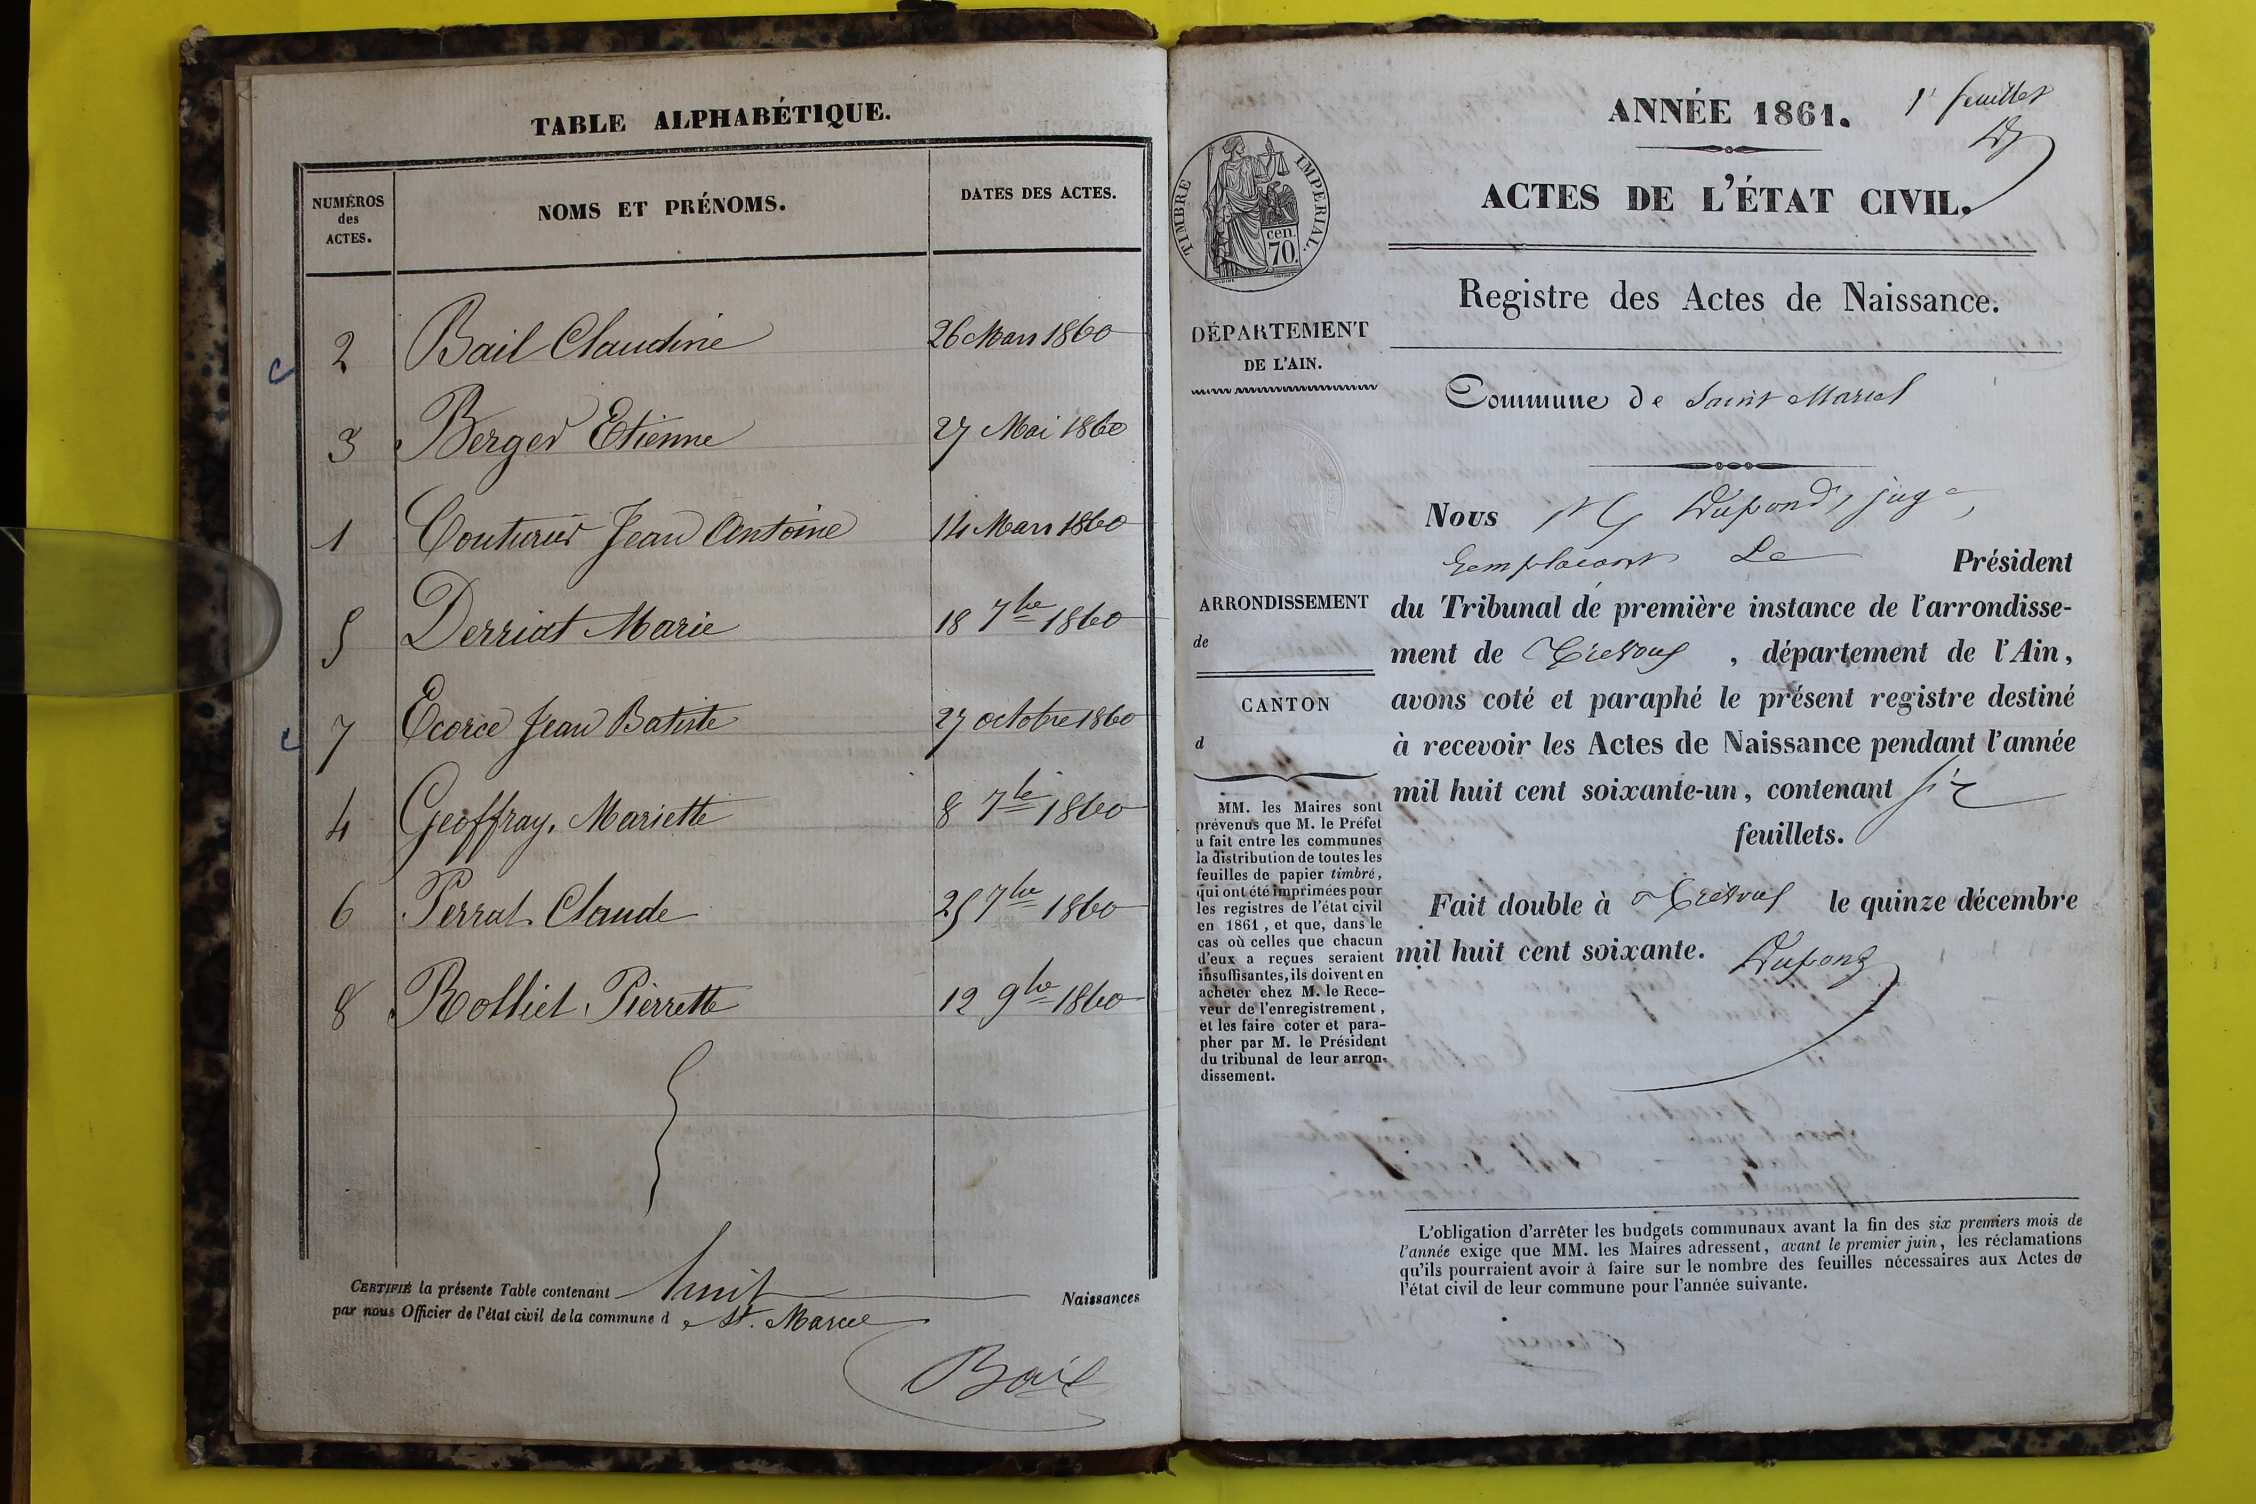 TABLE ALPHABÉTIQUE.
NUMÉROS des ACTES.
NOMS ET PRÉNOMS.
DATES DES ACTES.
2 Bail Claudine 26 Mars 1860
3 Berger Etienne 27 Mai 1860
1 Couturier Jean Antoine 14 Mars 1860
5 Derriat Marie 18 7bre 1860
7 Ecorce Jean Batiste 27 octobre 1860
4 Geoffray Mariette 8 7bre 1860
6 Perrat Claude 25 7bre 1860
8 Rolliet Pierrette 12 9bre 1860
CERTIFIÉ la présente Table contenant huit Naissances
par nous Officier de l'état civil de la commune d St. Marcel
Bail
1er feuillet
ANNÉE 1861.
ACTES DE L'ÉTAT CIVIL.
Registre des Actes de Naissance.
TIMBRE IMPERIAL.
cen.
70.
DÉPARTEMENT
DE L'AIN.
ARRONDISSEMENT
de
CANTON
d
MM. les Maires sont
prévenus que M. le Préfet
a fait entre les communes
la distribution de toutes les
feuilles de papier timbré,
qui ont été imprimées pour
les registres de l'état civil
en 1861, et que, dans le
cas où celles que chacun
d'eux a reçues seraient
insuffisantes, ils doivent en
acheter chez M. le Rece-
veur de l'enregistrement,
et les faire coter et para-
pher par M. le Président
du tribunal de leur arron-
dissement.
Commune de Saint Marcel
Nous Dupond, juge
remplaçant Le Président
du Tribunal de première instance de l'arrondisse-
ment de Trévoux, département de l'Ain,
avons coté et paraphé le présent registre destiné
à recevoir les Actes de Naissance pendant l'année
mil huit cent soixante-un, contenant six
feuillets.
Fait double à Trévoux le quinze décembre
mil huit cent soixante.
Dupond
L'obligation d'arrêter les budgets communaux avant la fin des six premiers mois de
l'année exige que MM. les Maires adressent, avant le premier juin, les réclamations
qu'ils pourraient avoir à faire sur le nombre des feuilles nécessaires aux Actes de
l'état civil de leur commune pour l'année suivante.